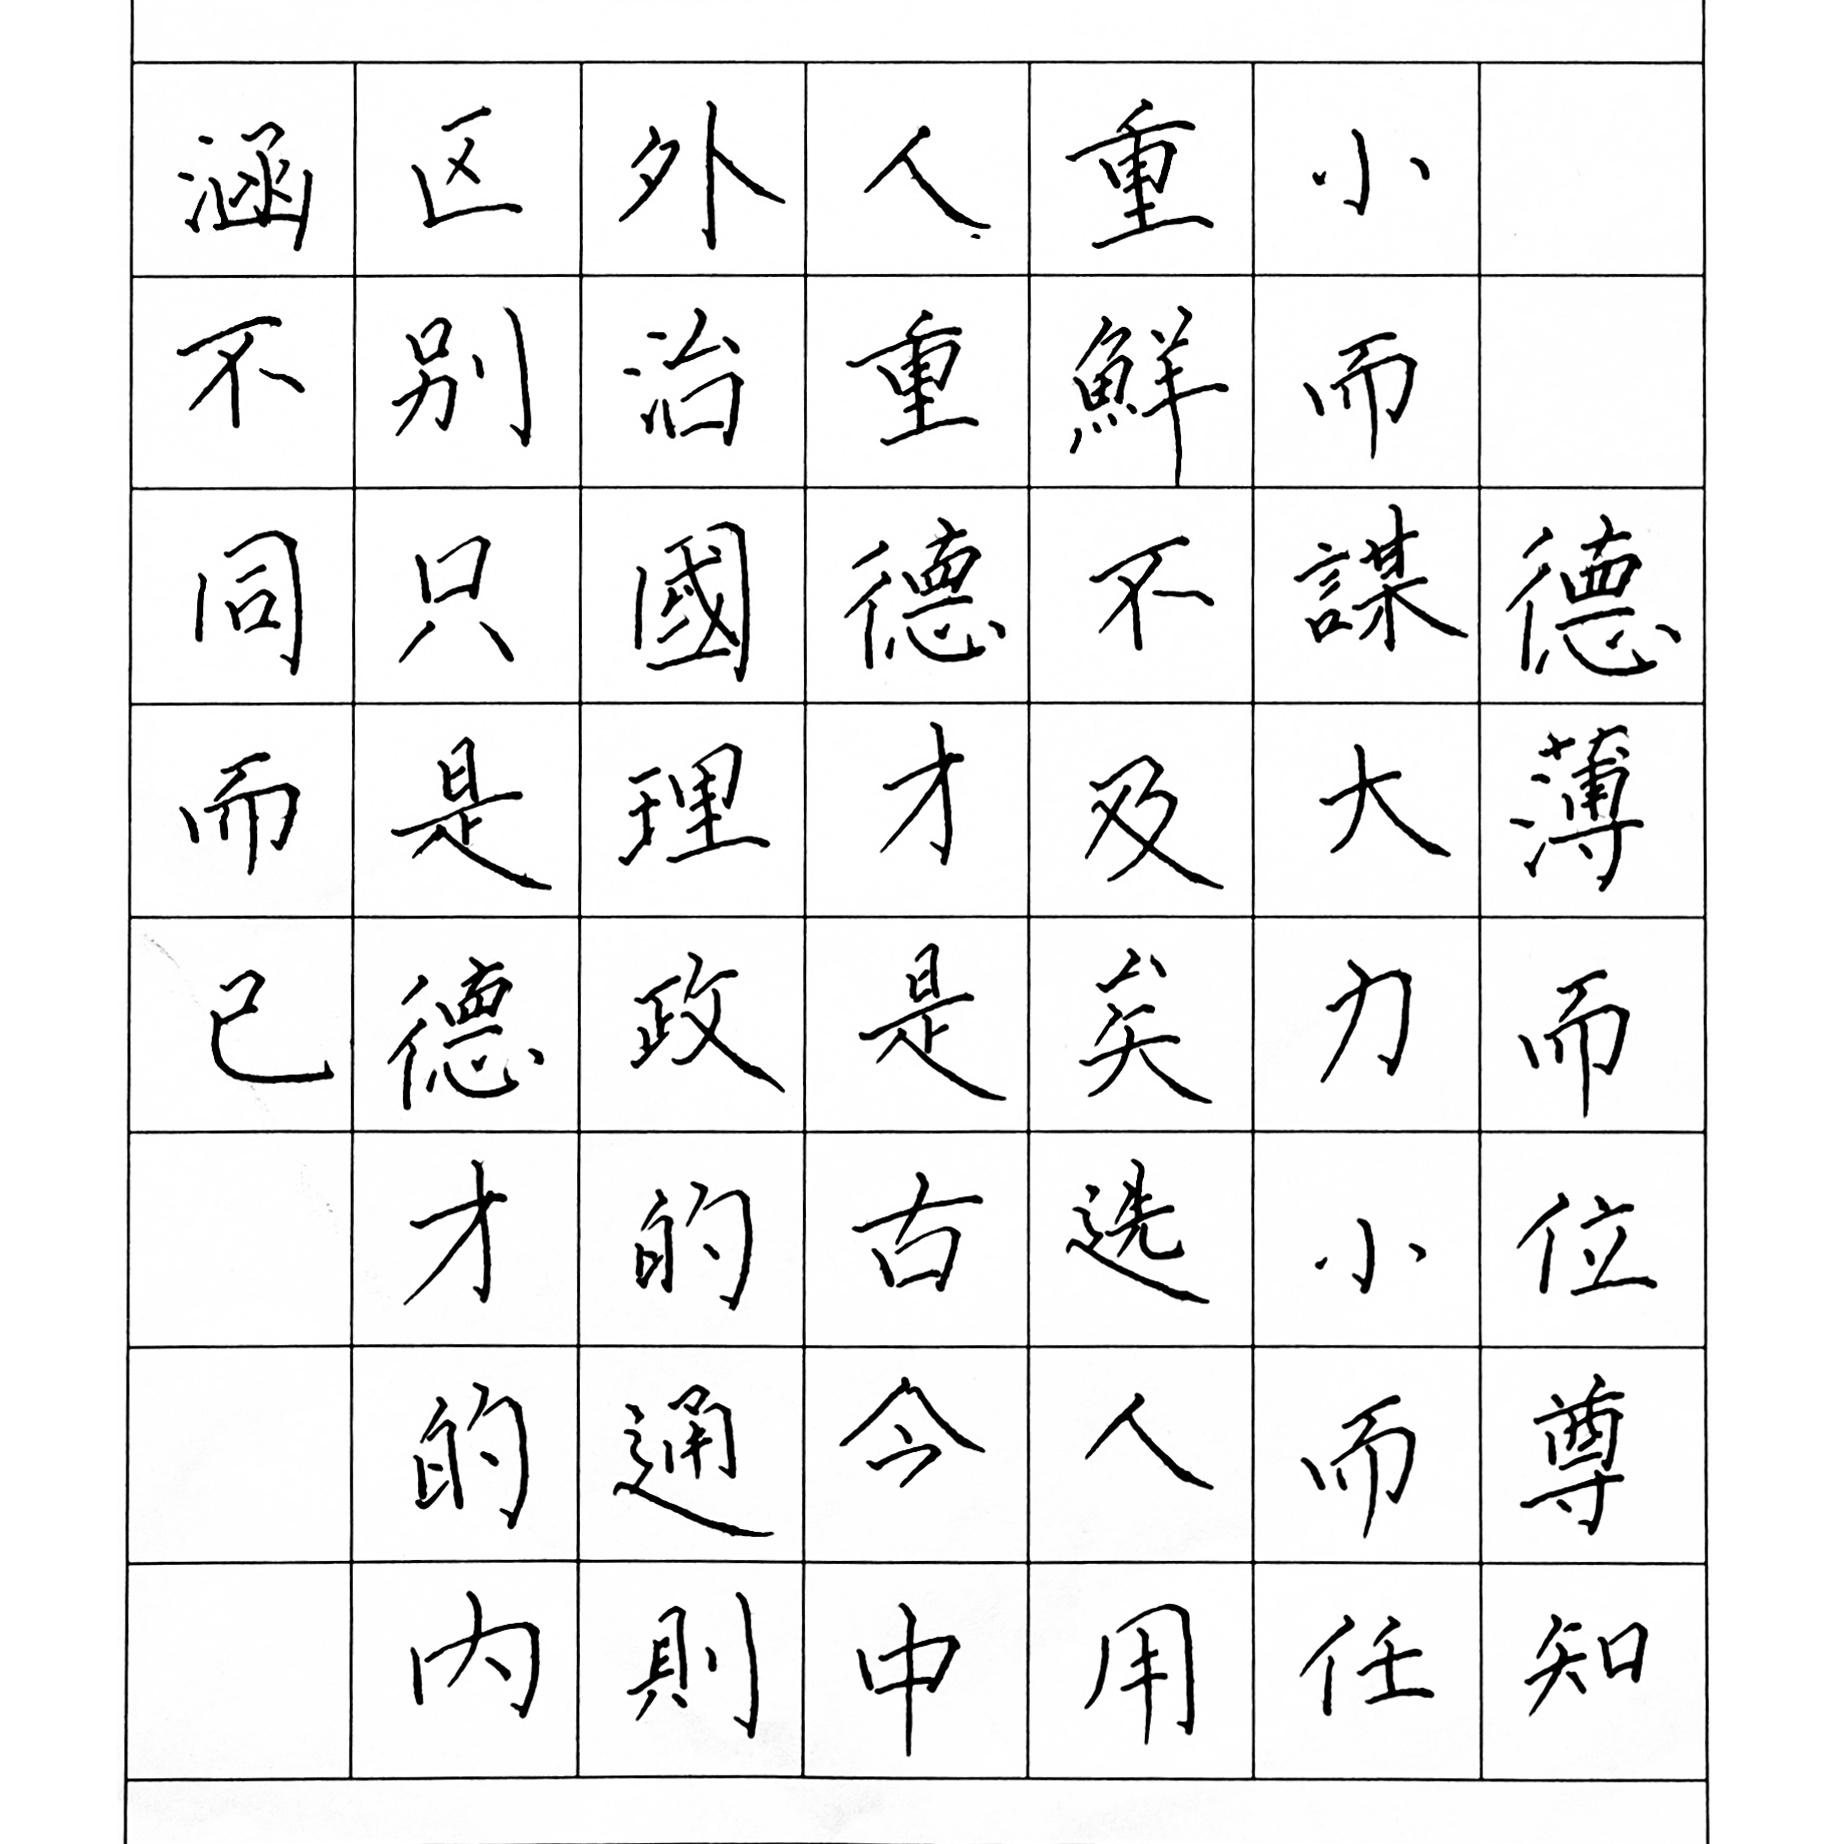 德薄而位尊知
小而謀大力小而任
重鮮不及矣选人用
人重德才是古今中
外治國理政的通則
区别只是德才的内
涵不同而已